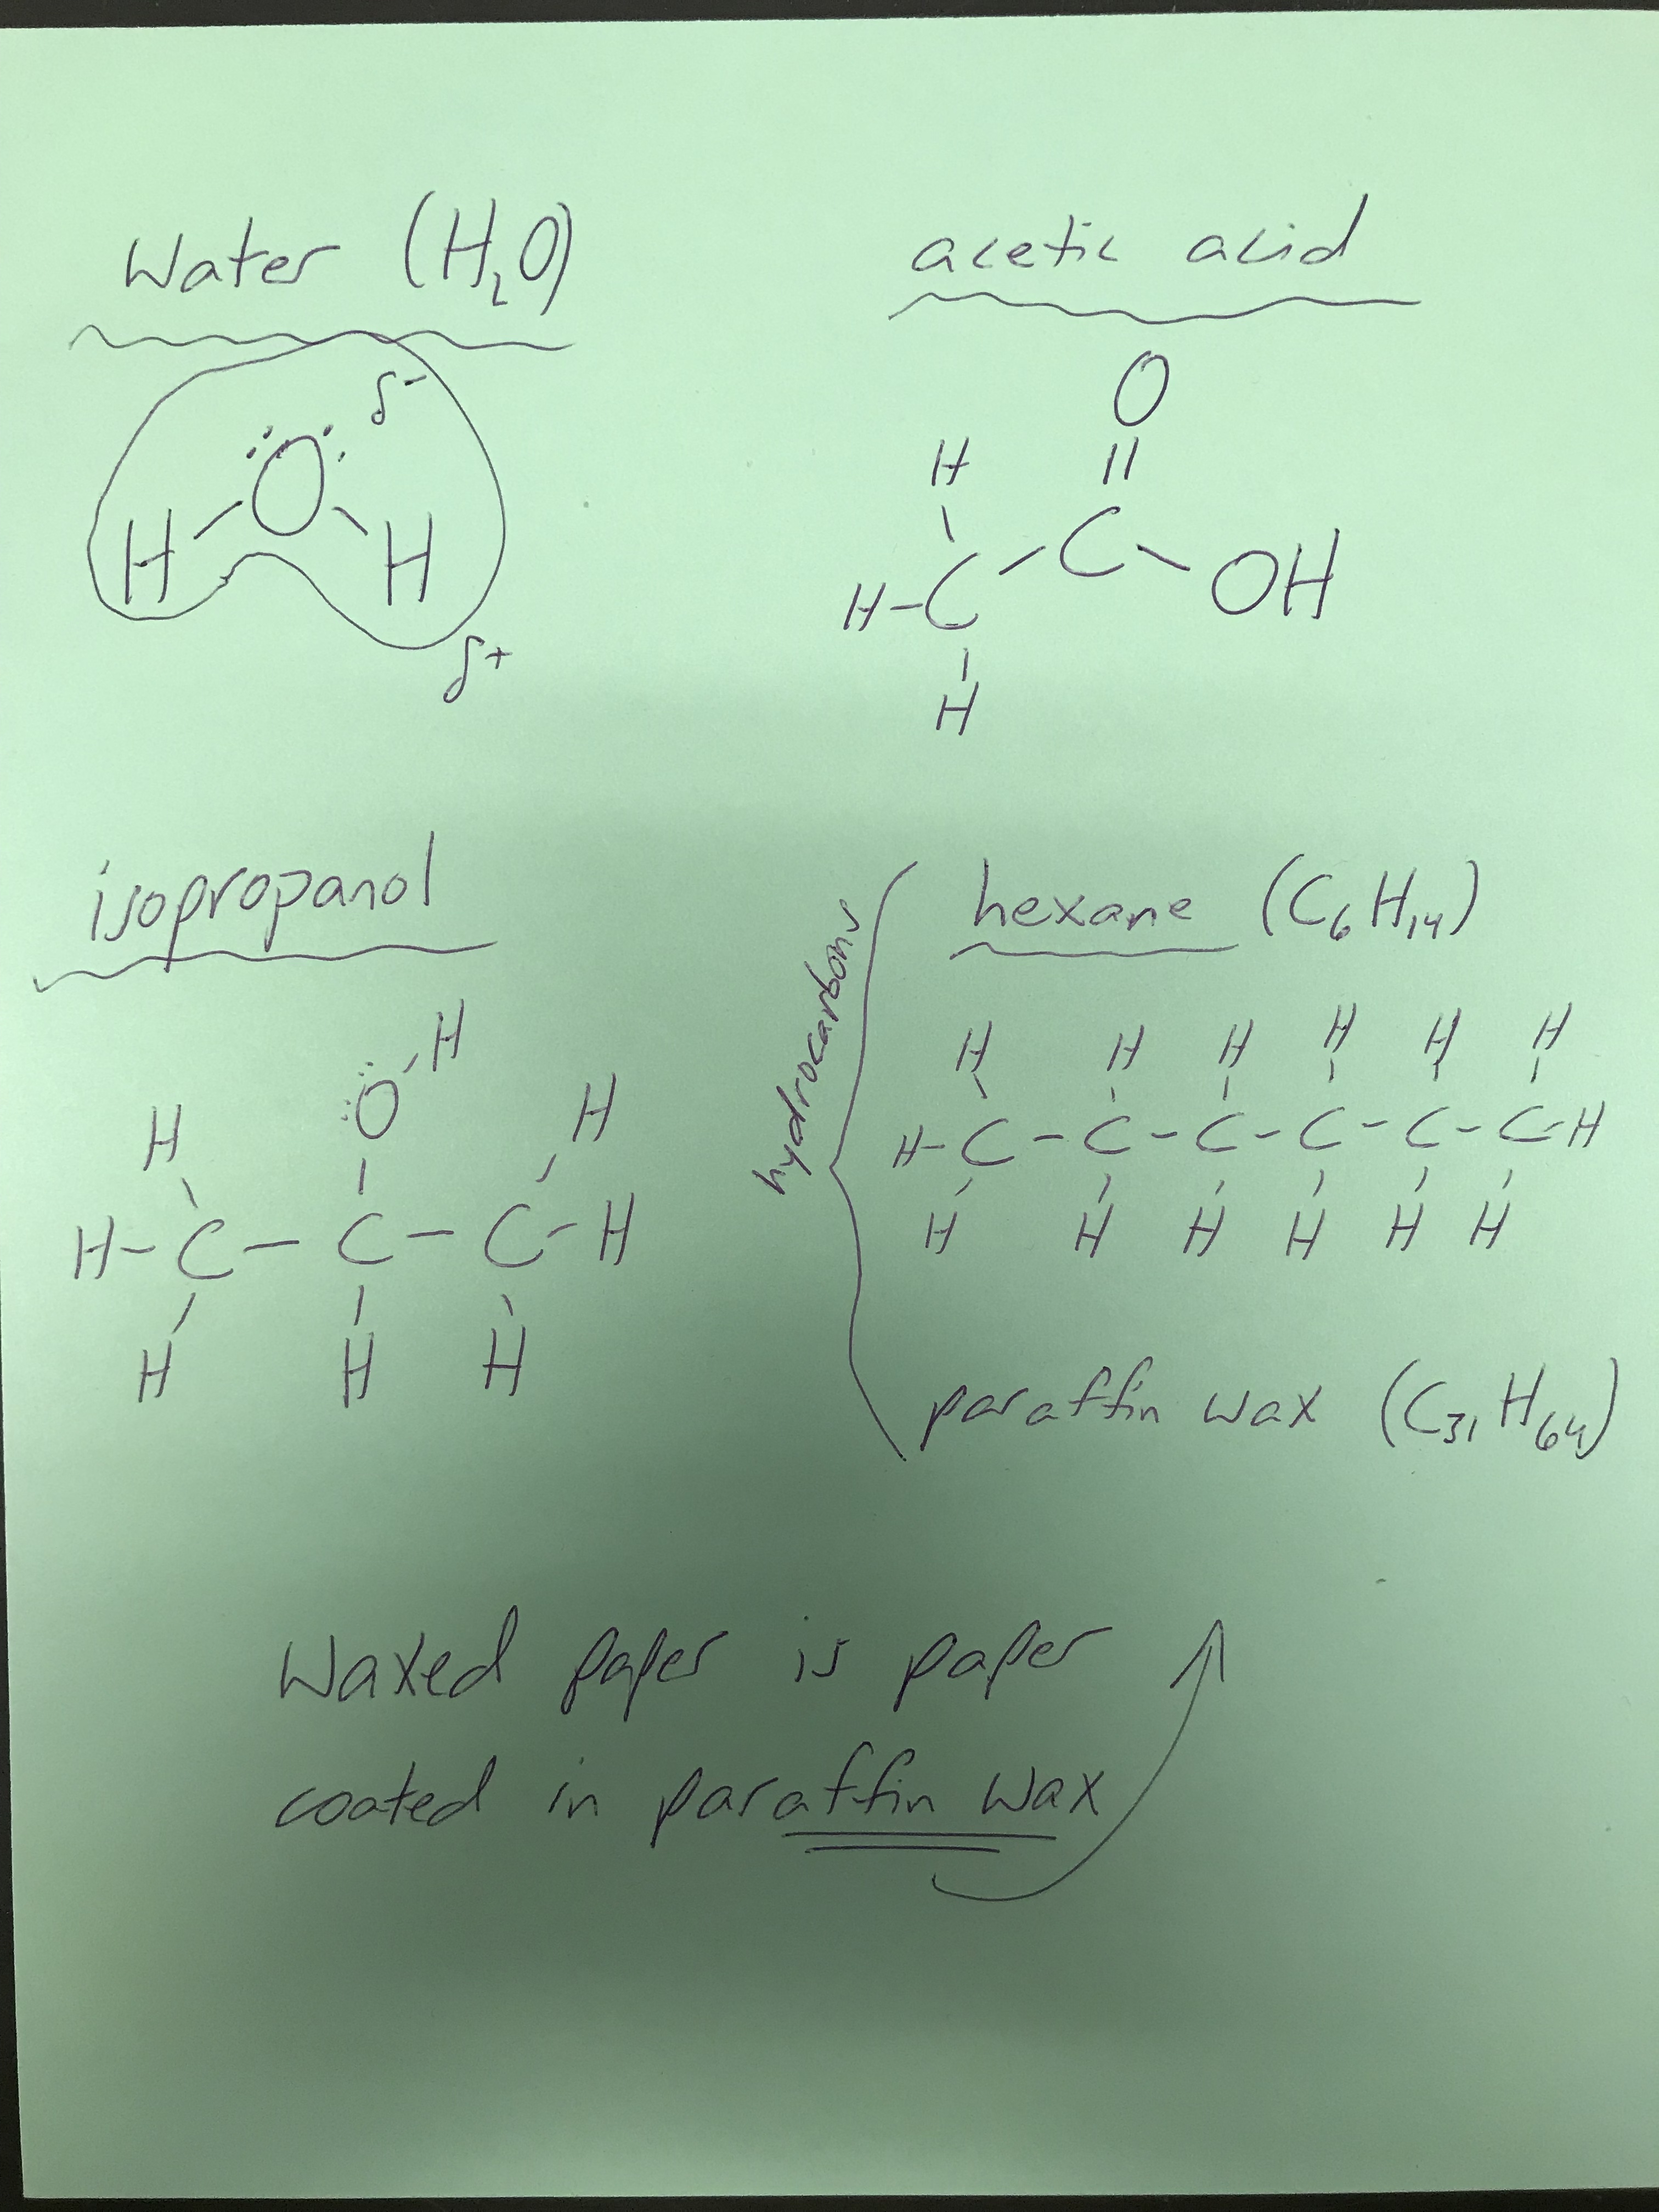 Water (H₂O)
δ-
:O:
H H
δ+
acetic acid
O
H
C OH
H-C
H
isopropanol
H
:Ö
H H
H-C-C-C-H
H H H
hydrocarbons
hexane (C₆H₁₄)
H H H H H H
H-C-C-C-C-C-C-H
H H H H H H
paraffin wax (C₃₁H₆₄)
Waxed paper is paper
coated in paraffin wax